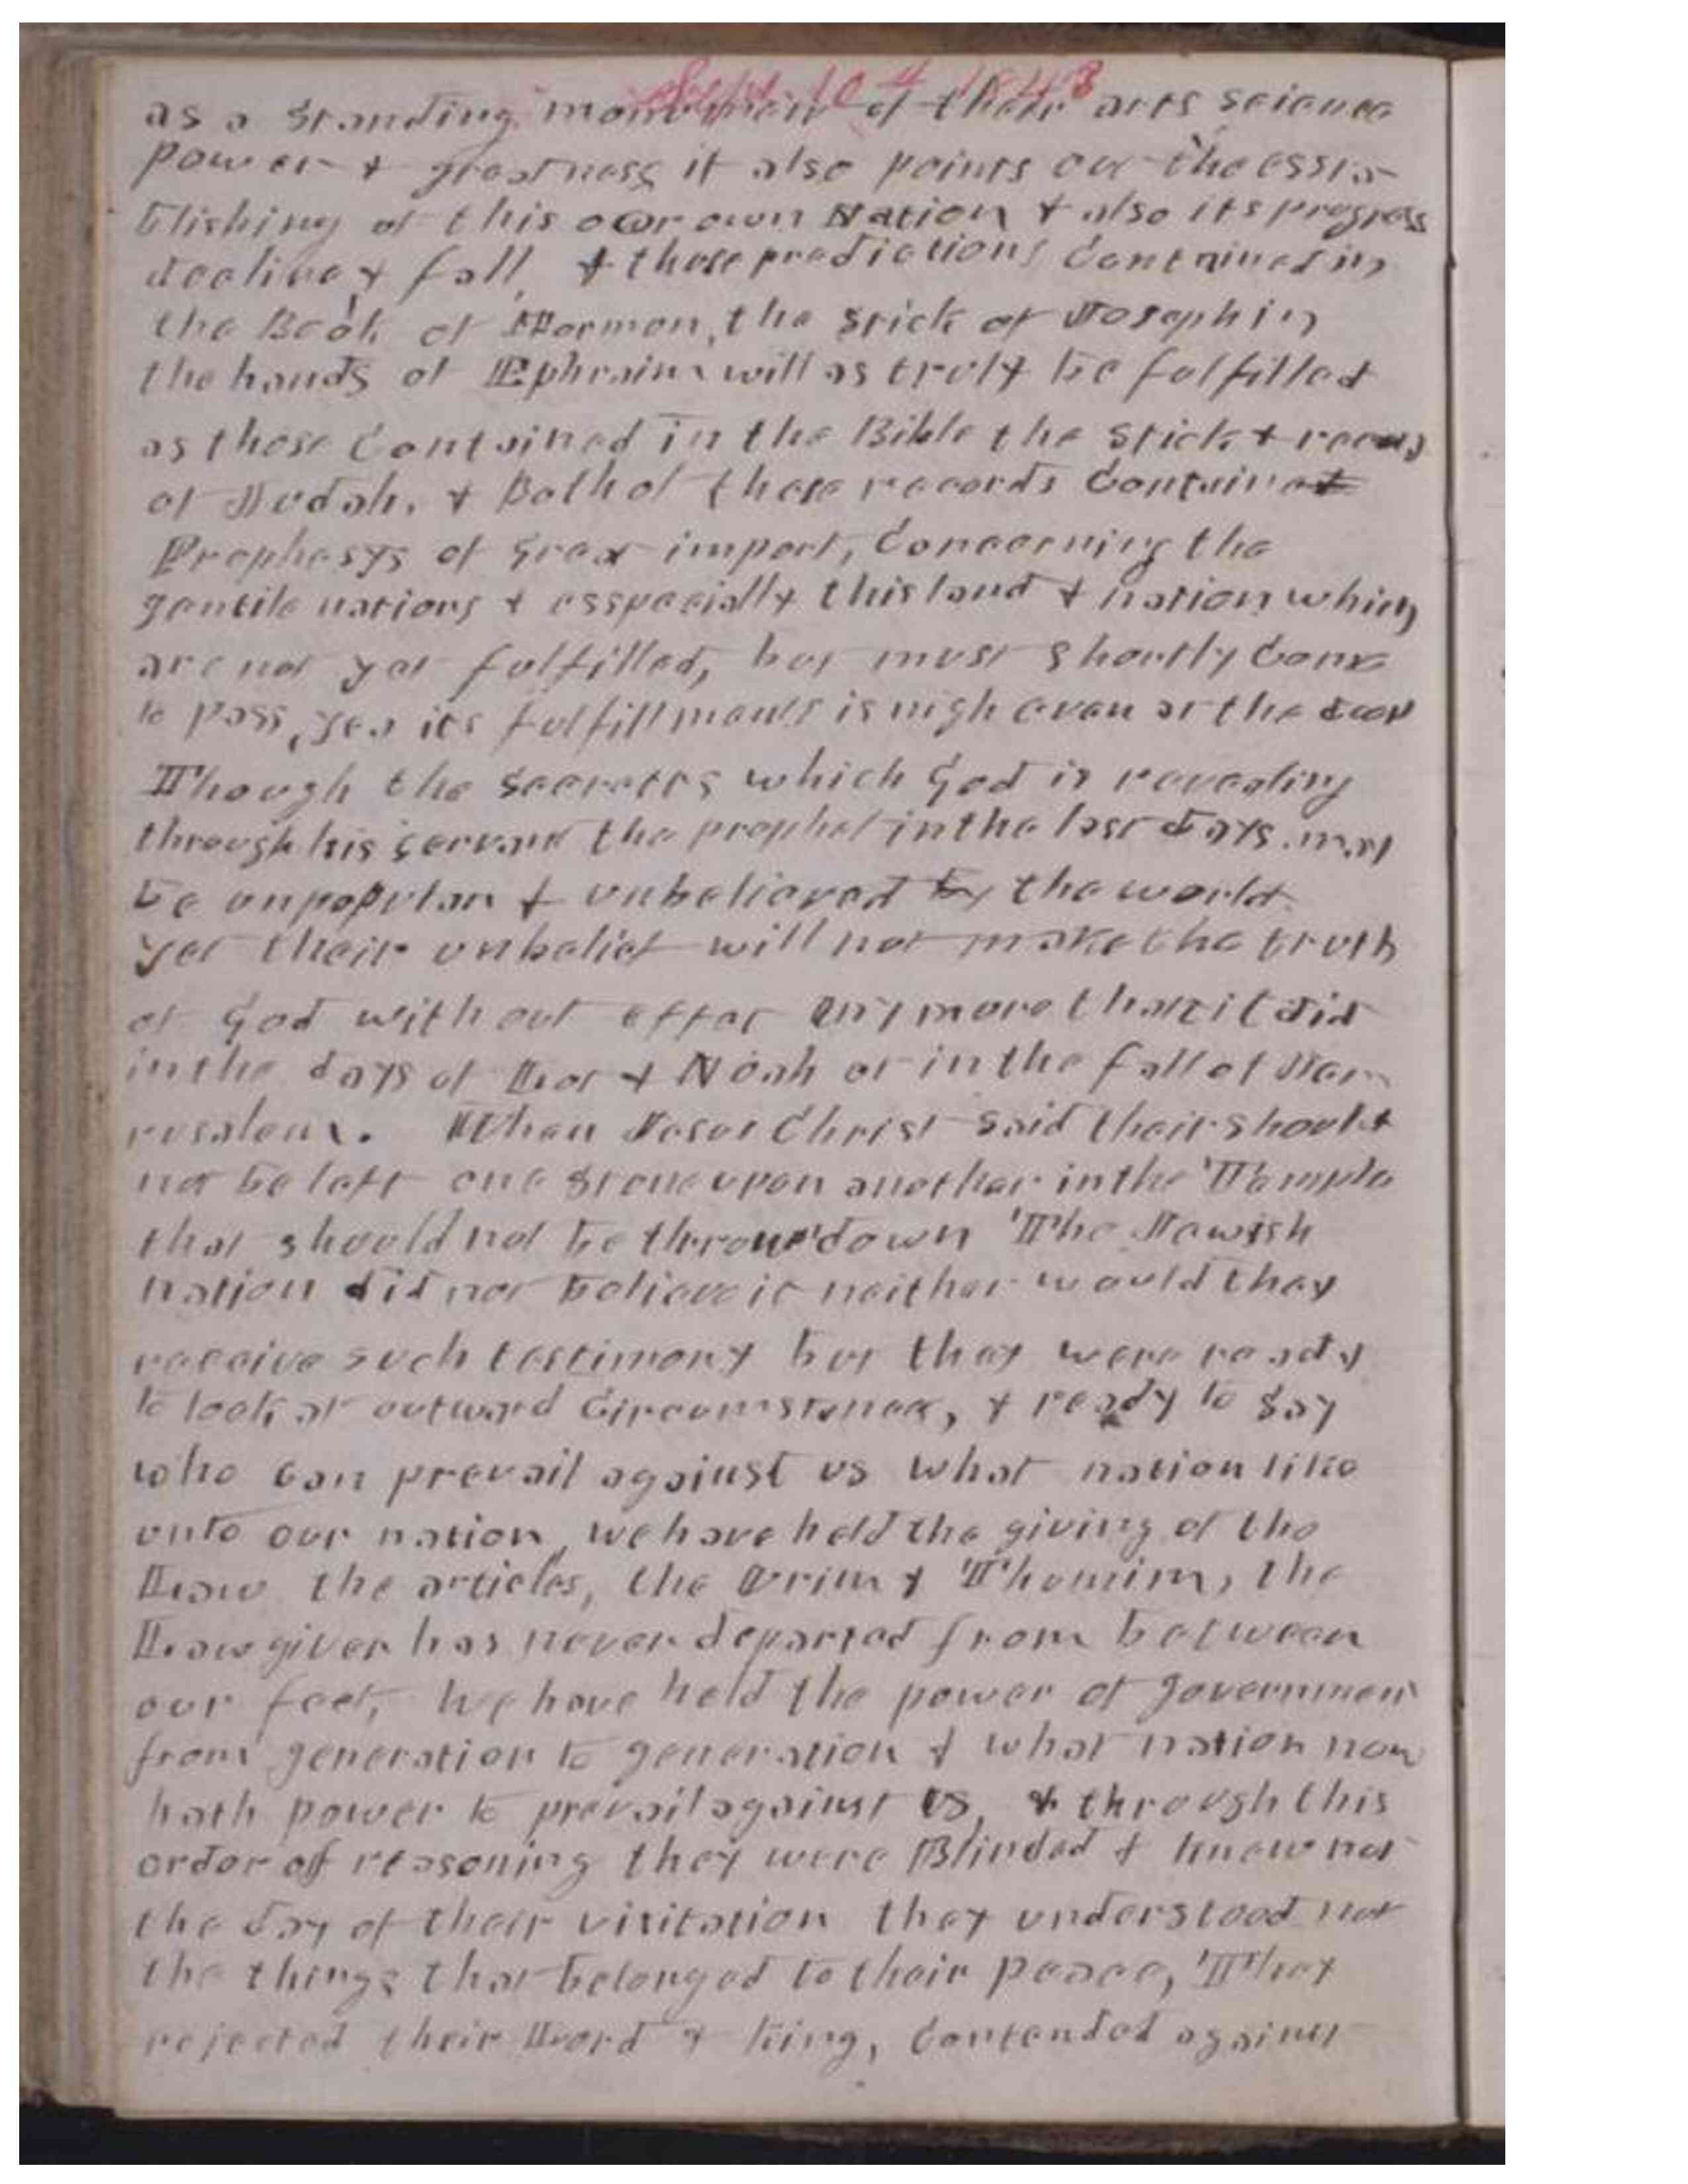 Sept. 10th 1843
as a standing monument of their arts science
power & greatness it also points out the essta-
blishing of this our own Nation & also its progress
decline & fall, & those predictions Contained in
the Book of Mormon, the stick of Joseph in
the hands of Ephraim will as truly be fulfilled
as those Contained in the Bible the stick & record
of Judah. & Both of these records Contain
Prophesys of great import, Concerning the
gentile nations & esspecially this land & nation which
are not yet fulfilled, but must shortly Come
to pass, yea its fulfillments is nigh even at the door
Though the secretts which God is revealing
through his servant the prophet in the last days may
be unpopular & unbelieved by the world
yet their unbelief will not make the truth
of God without effect any more than it did
in the days of Lot & Noah or in the fall of Jer-
rusalem. When Jesus Christ said their should
not be left one stone upon another in the Temple
that should not be throne down The Jewish
nation did not believe it neither would they
receive such testimony but they were ready
to look at outward Circumstances, & ready to say
who can prevail against us what nation like
unto our nation, we have held the giving of the
Law the articles, the Urim & Thumim, the
Lawgiver has never departed from between
our feet, We have held the power of government
from generation to generation & what nation now
hath power to prevail against us, & through this
order off reasoning they were Blinded & knew not
the day of their visitation they understood not
the things that belonged to their peace, They
rejected their Lord & King, Contended against